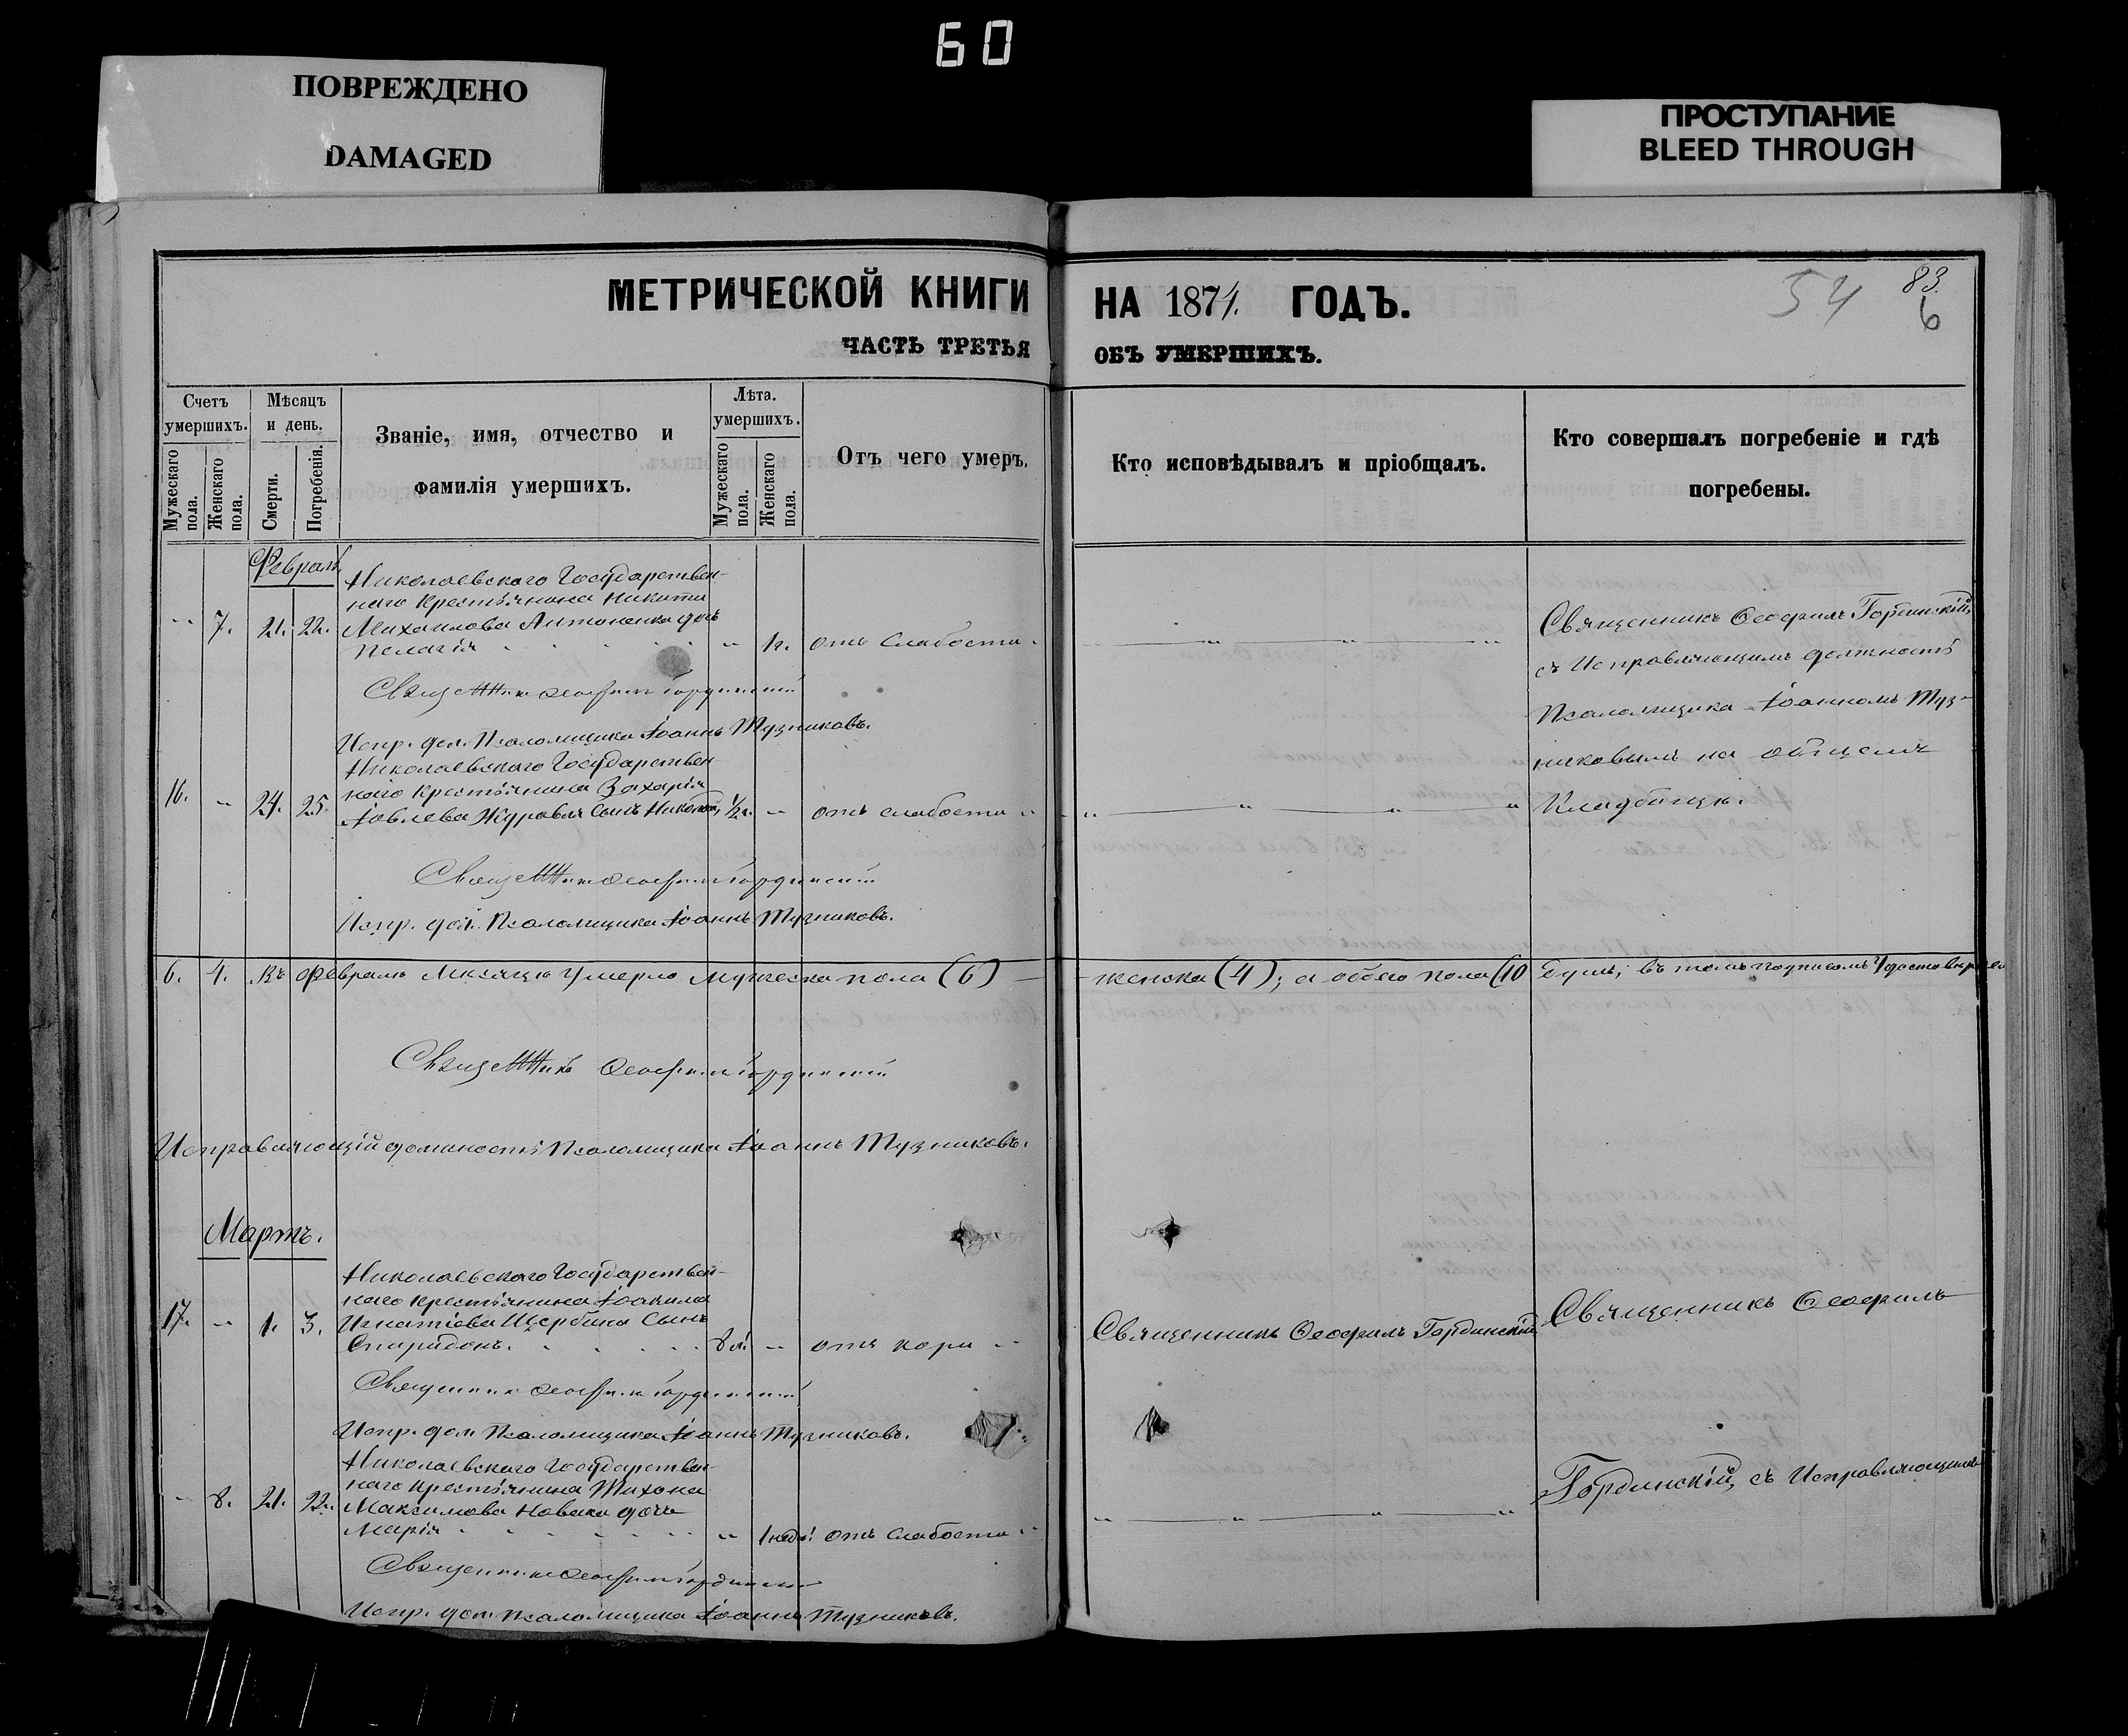 60
ПОВРЕЖДЕНО
DAMAGED
ПРОСТУПАНИЕ
BLEED THROUGH
МЕТРИЧЕСКОЙ КНИГИ НА 1871. ГОДЪ.
54 83.
6
ЧАСТЬ ТРЕТЬЯ ОБЪ УМЕРШИХЪ.
Счетъ умершихъ.
Мужескаго пола.
Женскаго пола.
Мѣсяцъ и день.
Смерти.
Погребенія.
Званіе, имя, отчество и
фамилія умершихъ.
Лѣта. умершихъ.
Мужескаго пола.
Женскаго пола.
Отъ чего умеръ.
Кто исповѣдывалъ и пріобщалъ.
Кто совершалъ погребеніе и гдѣ
погребены.
Февраль
Николаевскаго Государствен-
наго Крестьянина Никиты
7. 21. 22. Михаилова Антоненка дочь
Пелагія 1г. отъ слабости
Священникъ Ѳеофилъ Гординскій
Испр. дол. Псаломщика Іоаннъ Тузниковъ.
Священникъ Ѳеофилъ Гординскій,
съ Исправляющимъ должность
Псаломщика Іоанномъ Туз-
никовымъ на общемъ
Кладбищѣ.
Николаевскаго Государствен
наго Крестьянина Захарія
16. 24. 25. Іовлева Журавля Сынъ Николай 1/2г. отъ слабости
Священникъ Ѳеофилъ Гординскій
Испр. дол. Псаломщика Іоаннъ Тузниковъ.
6. 4. Въ Февралѣ Мѣсяцѣ умерло Мужеска пола (6) — женска (4); а обоего пола (10 душъ; въ томъ подписомъ Удостовѣряемъ
Священникъ Ѳеофилъ Гординскій
Исправляющій должность Псаломщика Іоаннъ Тузниковъ.
Мартъ.
Николаевскаго Государствен-
наго Крестьянина Іоакима
17. 1. 3. Игнатіева Щербины Сынъ
Спиридонъ. 8 л. отъ кори
Священникъ Ѳеофилъ Гординскій
Священникъ Ѳеофилъ
Священникъ Ѳеофилъ Гординскій
Испр. дол. Псаломщика Іоаннъ Тузниковъ.
Николаевскаго Государствен-
наго Крестьянина Тихона
8. 21. 22. Максимова Новака дочь
Марія 1 нед. отъ слабости
Гординскій, съ Исправляющимъ
Священникъ Ѳеофилъ Гординскій
Испр. дол. Псаломщика Іоаннъ Тузниковъ.